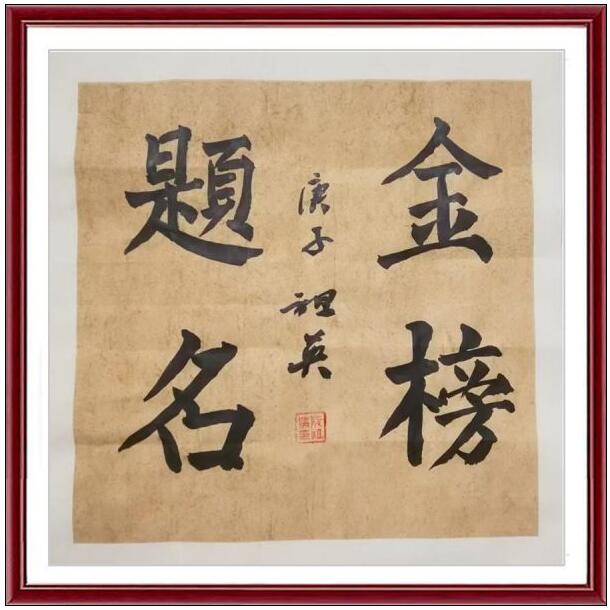 金榜
題名
庚子
祖英